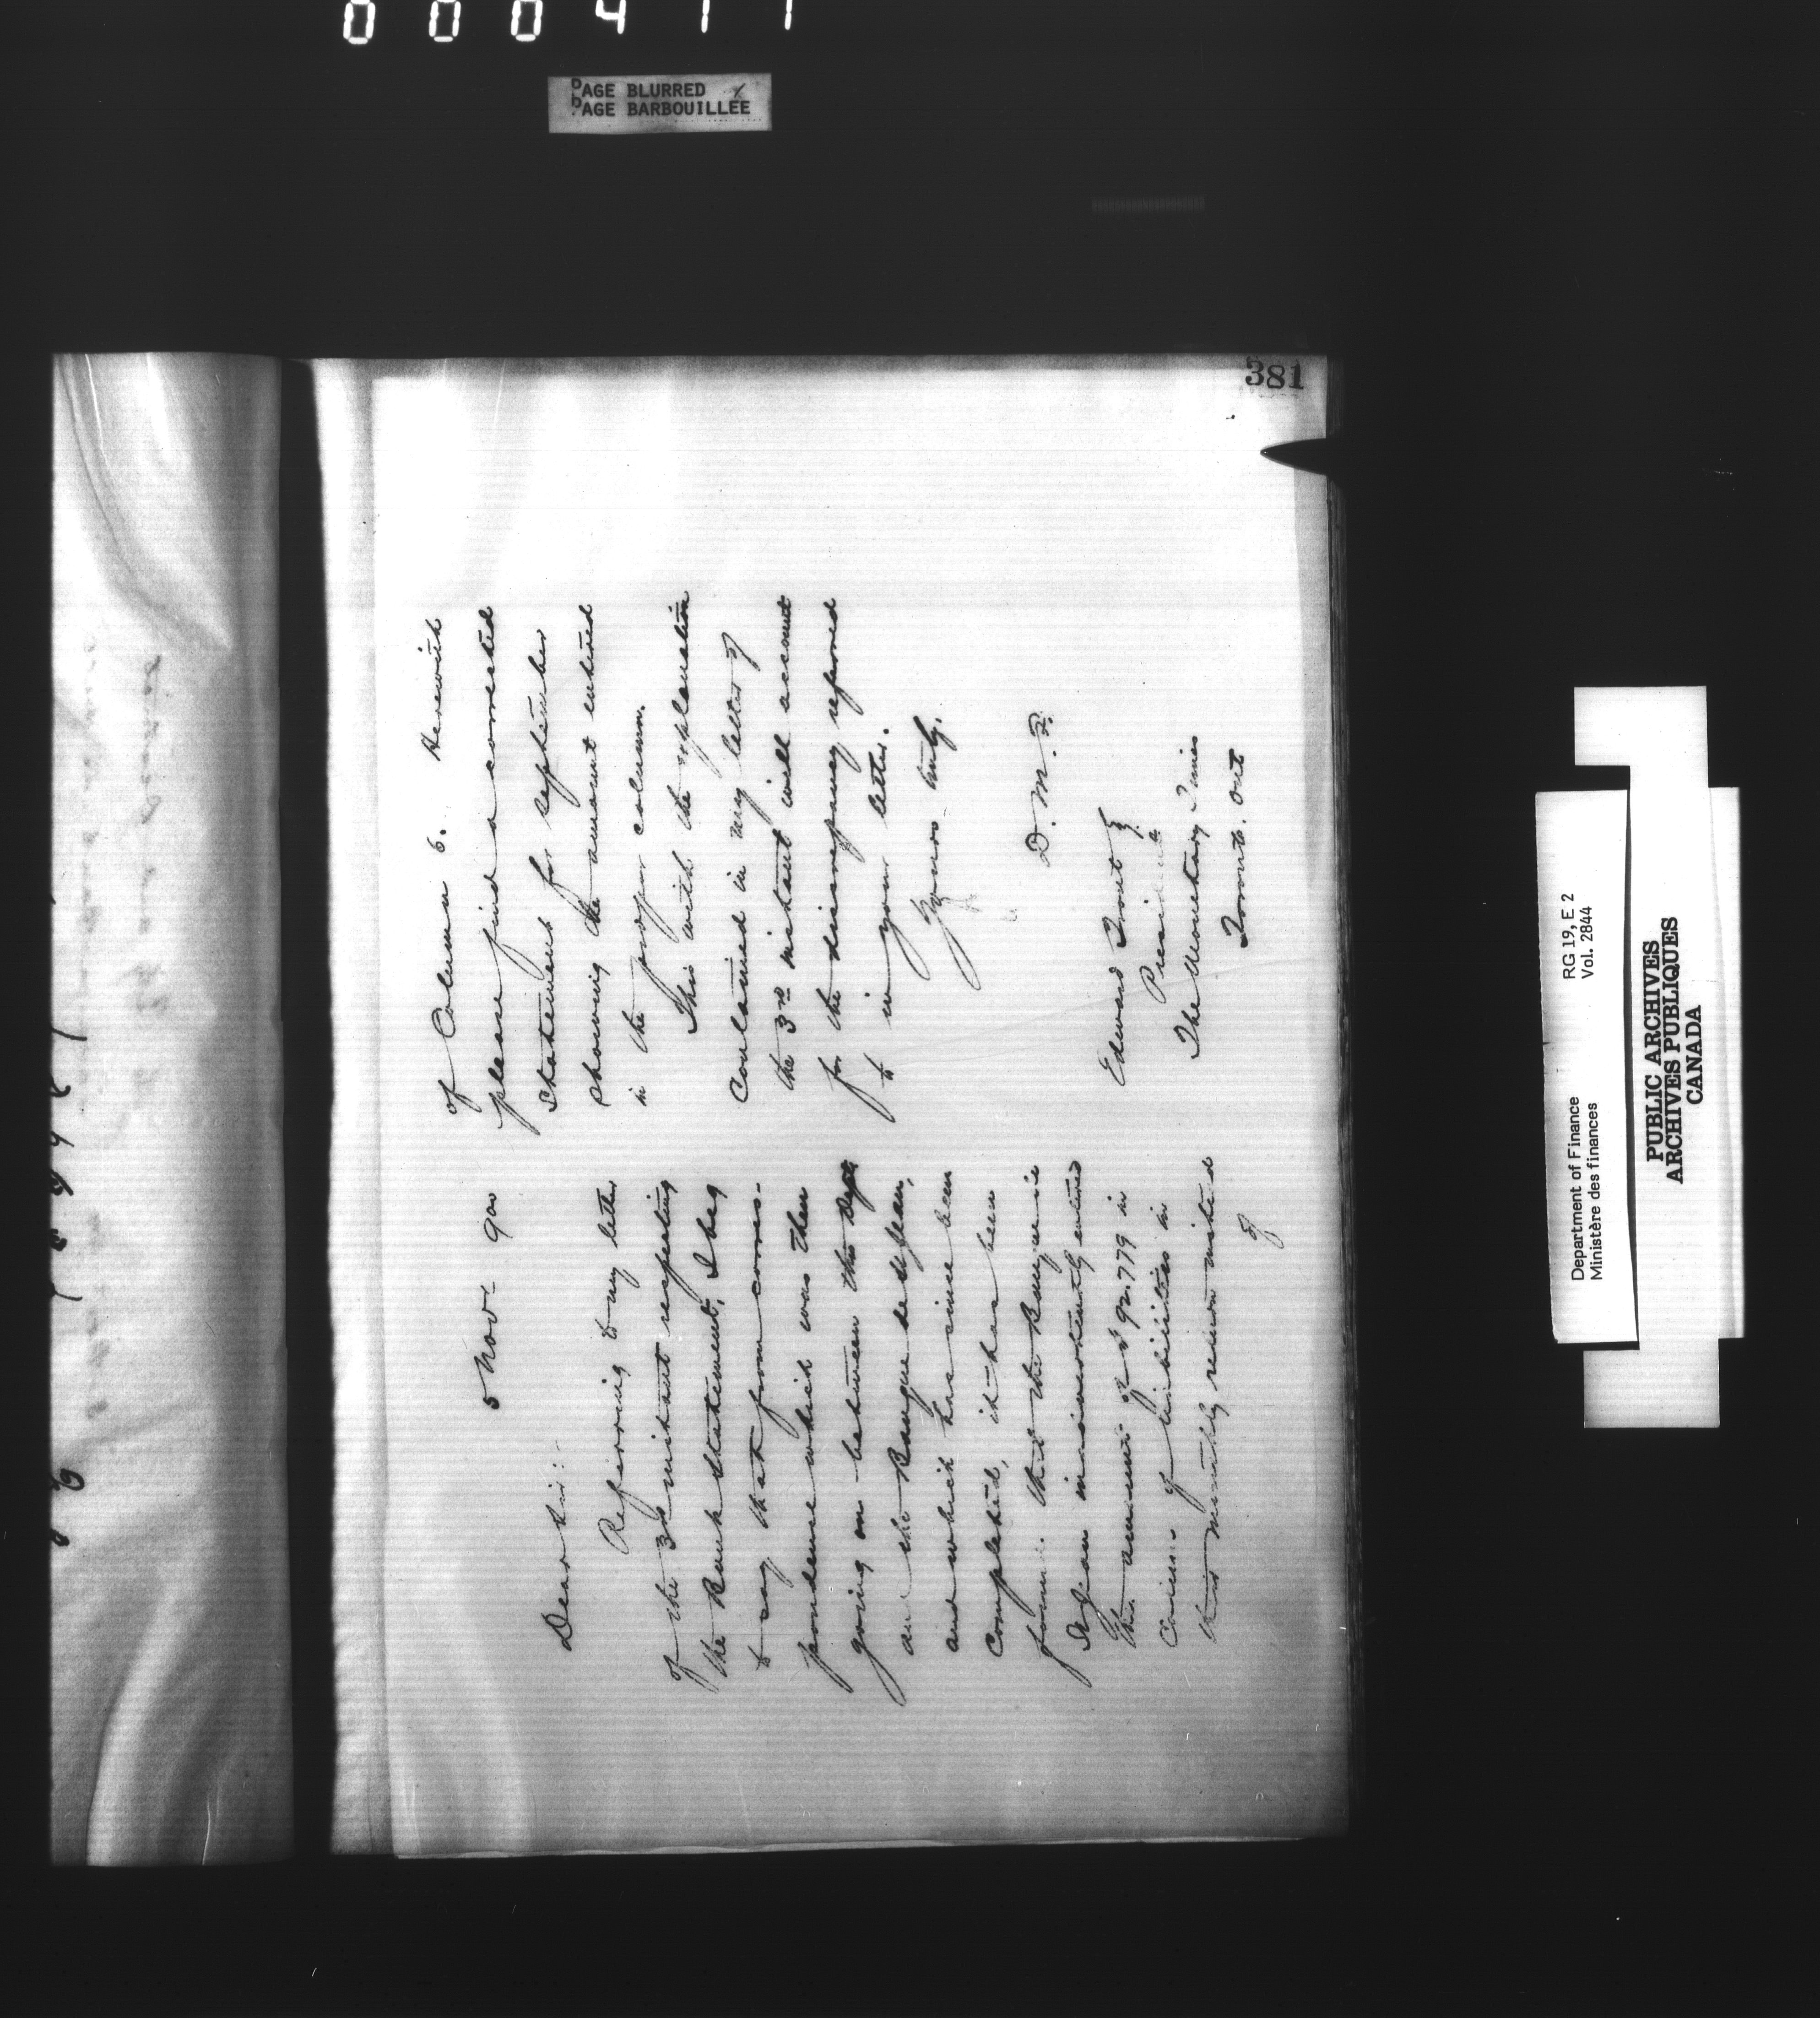 000477
PAGE BLURRED
PAGE BARBOUILLÉE
381
5 Nov: 90
Dear Sir:-
Referring to my letter
of the 3rd instant respecting
the Bank Statement, I beg
to say that from corres-
pondence which was then
going on between this Dept
and the Banque de St Jean,
and which has since been
completed, it has been
found that the Banque de
St Jean inadvertently entered
the amount of $92.779 in
of liabilities in
their monthly return instead
of
of Column 6. Herewith
please find a corrected
Statement for September
showing the amount entered
in the proper column.
This with the explanation
contained in my letter of
the 3rd instant will account
for the discrepancy referred
to in your letter.
Yours truly,
D. M. F.
Edward Trout
President
The Monetary Times
Toronto. Ont
Department of Finance
Ministère des finances
RG 19, E 2
Vol. 2844
PUBLIC ARCHIVES
ARCHIVES PUBLIQUES
CANADA